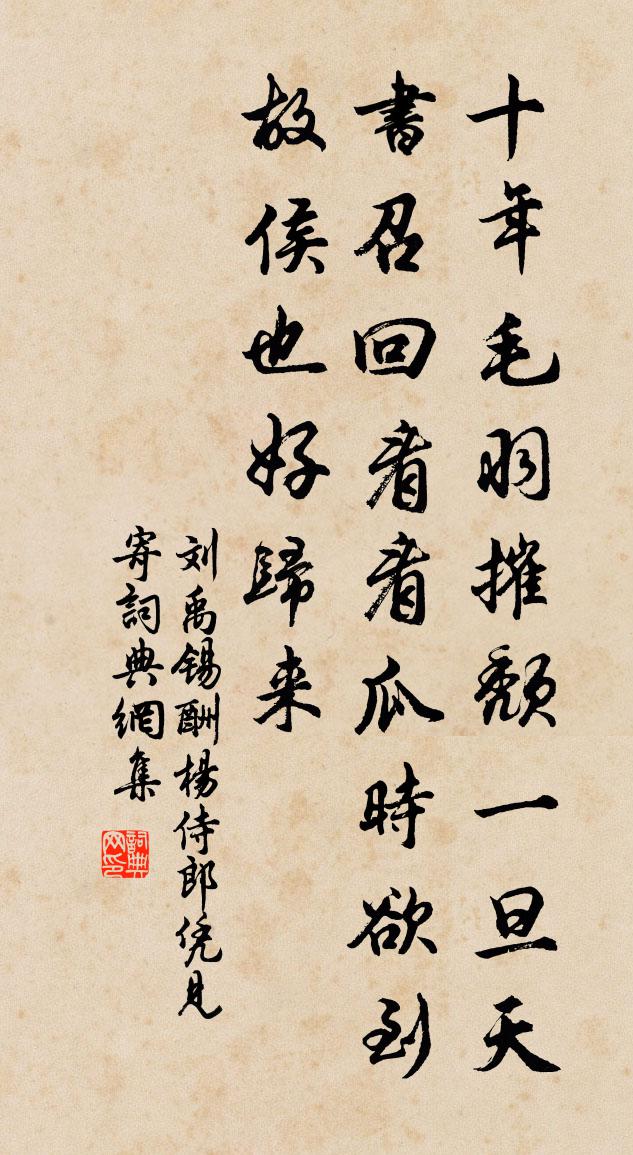 十年毛羽摧頽一旦天
書召回看看瓜時欲到
故侯也好歸来
刘禹锡酬楊侍郎凭見
寄詞典網集
詞典网印